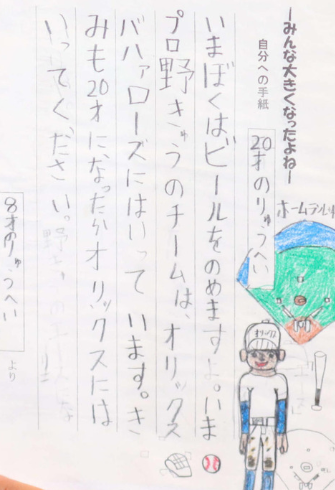 ーみんな大きくなったよねー
自分への手紙
20才のりゅうへい
いまぼくはビールをのめますよ。いま
プロ野きゅうのチームは、オリックス
バファローズにはいって います。き
みも20才になったからオリックスには
いってください。
8才のりゅうへい
より
オリックス